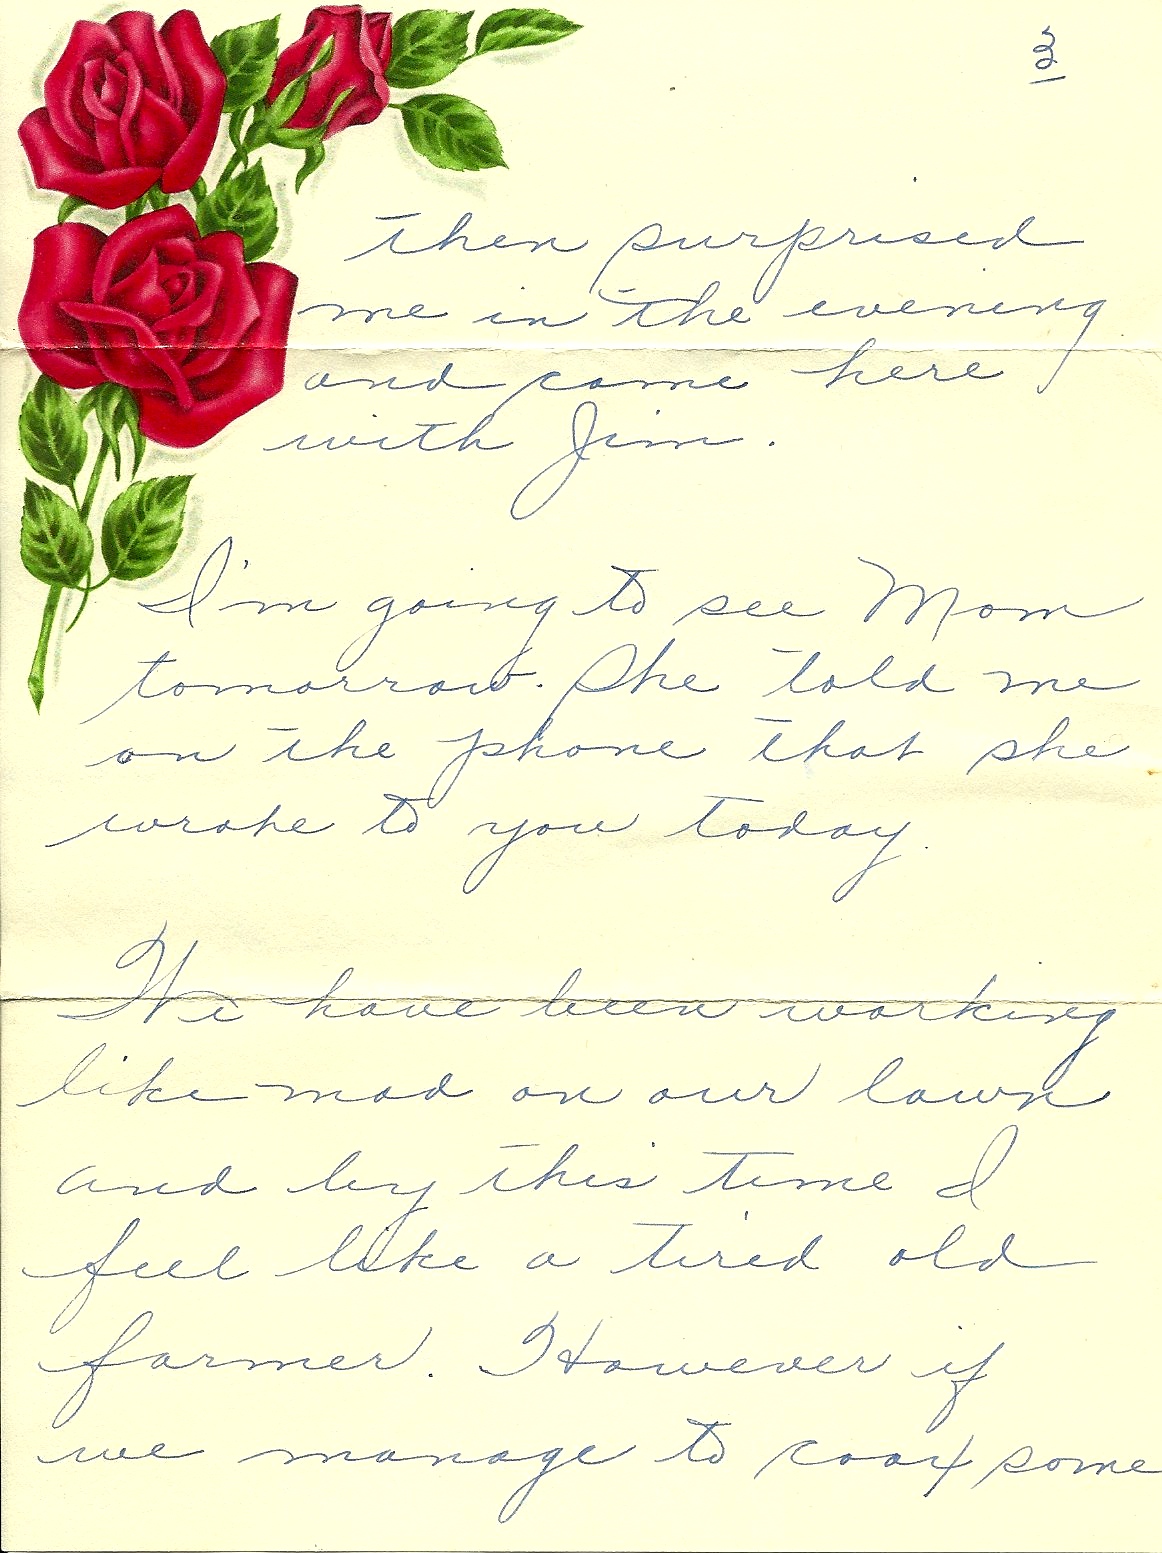 3
then surprised
me in the evening
and came here
with Jim.
I'm going to see Mom
tomorrow. She told me
on the phone that she
wrote to you today.
We have been working
like mad on our lawn
and by this time I
feel like a tired old
farmer. However if
we manage to coax some